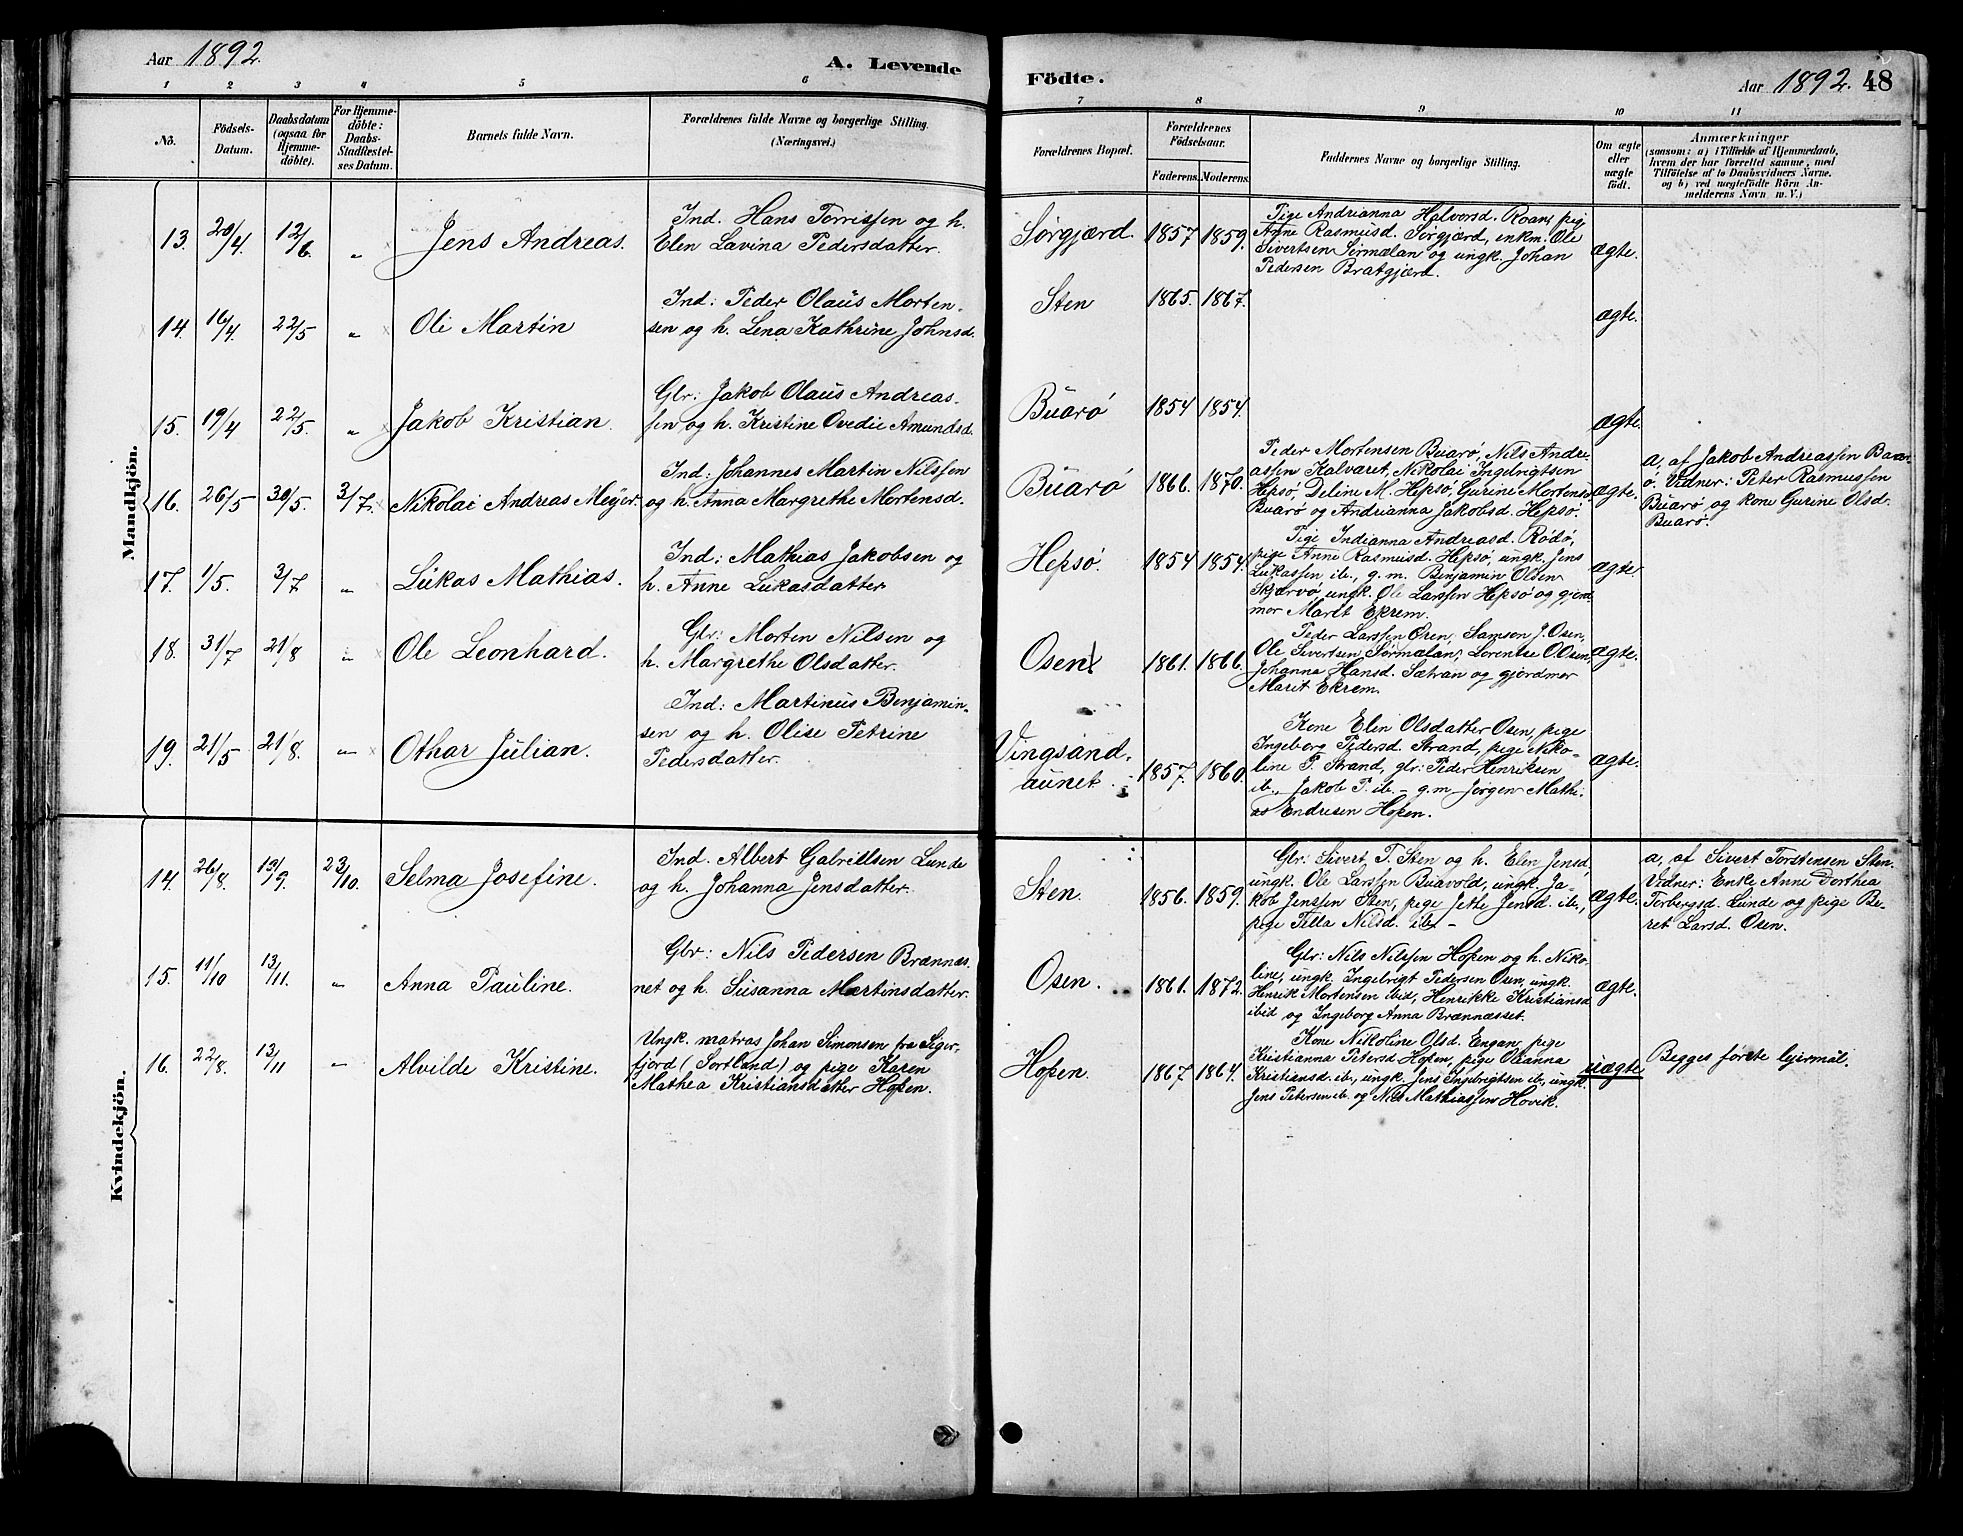 Aar 1892.
A. Levende
1 2 3 4 5 6
No.
Födsels-
Datum.
Daabsdatum
(ogsaa for
Hjemme-
döbte).
For Hjemme-
döbte:
Daabs-
Stadfæstel-
ses Datum.
Barnets fulde Navn.
Forældrenes fulde Navne og borgerlige Stilling.
(Næringsvei.)
Mandkjön.
13. 20/4 12/6. " Jens Andreas.
Ind. Hans Torrissen og h.
Elen Lavina Pedersdatter.
14. 16/4 22/5 " Ole Martin
Ind: Peder Olaus Morten-
sen og h. Lena Kathrine Johnsd.
15. 19/4 22/5. " Jakob Kristian.
Glr: Jakob Olaus Andreas-
sen og h. Kristine Ovedie Amundsd.
16. 26/5 30/5. 3/7. Nikolai Andreas Meyer.
Ind: Johannes Martin Nilssen
og h. Anna Margrethe Mortensd.
17. 1/5. 3/7 " Lukas Mathias.
Ind: Mathias Jakobsen og
h. Anne Lukasdatter
18. 31/7 21/8 " Ole Leonhard.
Glr: Morten Nilsen og
h. Margrethe Olsdatter.
19. 21/5 21/8. " Othar Julian.
Ind: Martinus Benjamin-
sen og h. Olise Petrine
Pedersdatter.
Kvindekjön.
14. 26/8. 19/9. 23/10. Selma Josefine.
Ind. Albert Gabrillsen Lunde
og h. Johanna Jensdatter.
15. 11/10 13/11. " Anna Pauline.
Glr: Nils Pedersen Brannæs-
net og h. Susanna Martinsdatter.
16. 22/8. 13/11 " Alvilde Kristine.
Ungk. matros Johan Simonsen fra Siger-
fjord (Sortland) og pige Karen
Mathea Kristiansdatter Hopen.
Födte.
Aar 1892. 48
7 8 9 10 11
Forældrenes Bopæl.
Forældrenes
Födselsaar.
Faderens. Moderens.
Faddernes Navne og borgerlige Stilling.
Om ægte
eller
uægte
födt.
Anmærkninger
(saasom: a) i Tilfælde af Hjemmedaab,
hvem der har forrettet samme, med
Tilföielse af to Daabsvidners Navne.
og b) ved uægtefödte Börn An-
melderens Navn m. V.)
Sørgjærd. 1857 1859.
Pige Andrianna Halvorsd. Roan, pig
Anne Rasmusd. Sørgjærd, enkm. Ole
Sivertsen Sørmælan og ungk. Johan
Pedersen Bratgjærd.
ægte.
Sten 1865. 1867.
ægte.
Buarø 1854 1854.
ægte.
Buarø 1866. 1870.
Peder Mortensen Buarø, Nils Andre-
assen Kalværet, Nikolai Ingebrigtsen
Hepsø, Deline M. Hepsø, Gurine Mortensd
Buarø og Andrianna Jakobsd. Hepsø.
ægte.
a, af Jakob Andreassen Buar-
ø. Vidner: Peter Rasmussen
Buarø og kone Gurine Olsd.
Buarø.
Hepsø. 1854 1854.
Pige Indianna Andreasd. Rødø,
pige Anne Rasmusd. Hepsø, ungk. Jens
Lukassen ib., g.m. Benjamin Olsen
Skjærvø, ungk. Ole Larssen Hepsø og gjord-
mor Marit Ekrem.
ægte.
Osen 1861. 1866.
Peder Larssen Osen, Samson J. Osen,
Ole Sivertsen Sørmælan, Lorentse O. Osen,
Johanna Hansd. Sætran og gjordmor
Marit Ekrem.
ægte.
Vingsand-
aunet. 1857. 1860.
Kone Elen Olsdatter Osen, pige
Ingeborg Pedersd. Strand, pige Niko-
line P. Strand, glr: Peder Henriksen
ib., Jakob P. ib. – g.m. Jørgen Mathi-
as Endresen Hopen.
ægte.
Sten. 1856. 1859.
Glr: Sivert T. Sten og h. Elen Jensd,
ungk. Ole Larssen Buavold, ungk. Ja-
kob Jenssen Sten, pige Jethe Jensd. ib.,
pige Tella Nilsd. ib. –
ægte.
a, af Sivert Torstensen Sten.
Vidner: Enke Anne Dorthea
Torbergsd. Lunde og pige Be-
ret Larsd. Osen.
Osen. 1861. 1872.
Glr: Nils Nilssen Hopen og h. Niko-
line, ungk. Ingebrigt Pedersen Osen, ungk.
Henrik Mortensen ibid, Henrikke Kristiansd
ibid og Ingeborg Anna Brannæsset.
ægte.
Hopen. 1867. 1864.
Kone Nikoline Olsd. Engan, pige
Kristianna Petersd Hopen, pige Oleanna
Kristiansd. ib., ungk. Jens Ingebrigtsen ib., ungk.
Jens Petersen ib. og Nils Mathiassen Hovik.
uægte
Begges første leiermål.